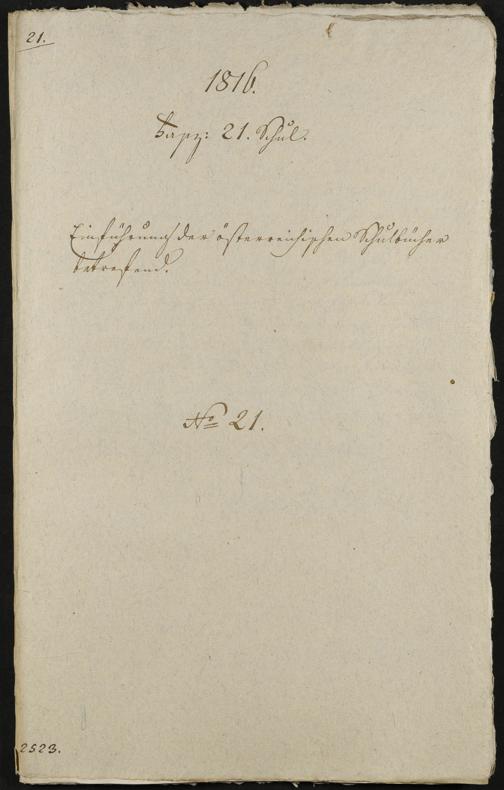 21.
1816.
Fasz: 21. Schul.
Einführung der österreichischen Schulbücher
betreffend.
No 21.
2523.